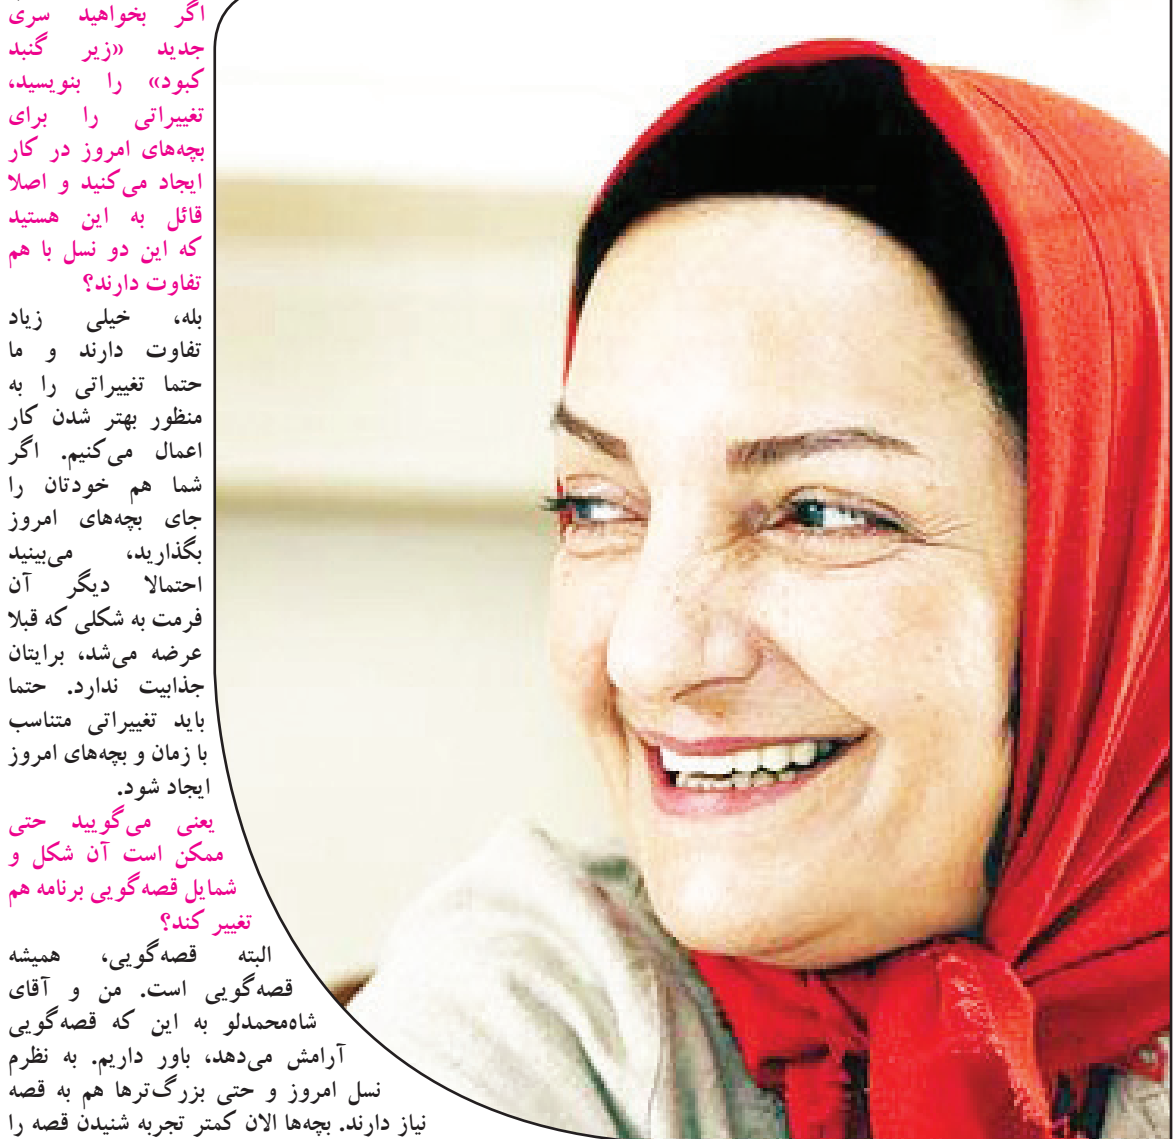 اگر بخواهید سری
جدید «زیر گنبد
کبود» را بنویسید،
تغییراتی را برای
بچه‌های امروز در کار
ایجاد می‌کنید و اصلا
قائل به این هستید
که این دو نسل با هم
تفاوت دارند؟
بله، خیلی زیاد
تفاوت دارند و ما
حتما تغییراتی را به
منظور بهتر شدن کار
اعمال می‌کنیم. اگر
شما هم خودتان را
جای بچه‌های امروز
بگذارید، می‌بینید
احتمالا دیگر آن
فرمت به شکلی که قبلا
عرضه می‌شد، برایتان
جذابیت ندارد. حتما
باید تغییراتی متناسب
با زمان و بچه‌های امروز
ایجاد شود.
یعنی می‌گویید حتی
ممکن است آن شکل و
شمایل قصه‌گویی برنامه هم
تغییر کند؟
البته قصه‌گویی، همیشه
قصه‌گویی است. من و آقای
شاه‌محمدلو به این که قصه‌گویی
آرامش می‌دهد، باور داریم. به نظرم
نسل امروز و حتی بزرگ‌ترها هم به قصه
نیاز دارند. بچه‌ها الان کمتر تجربه شنیدن قصه را